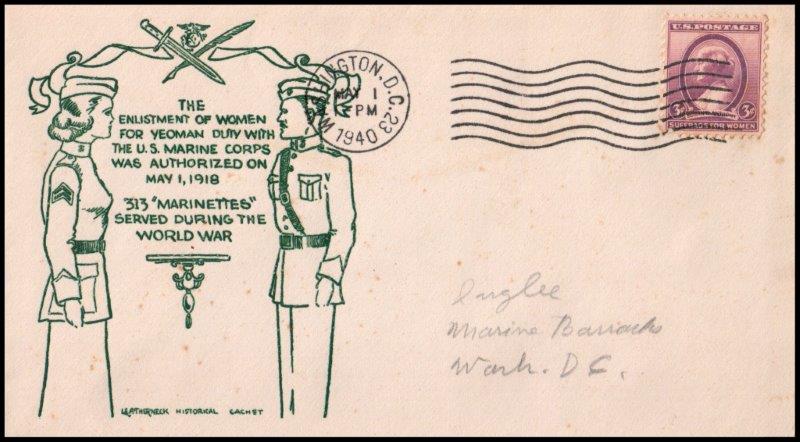 THE
ENLISTMENT OF WOMEN
FOR YEOMAN DUTY WITH
THE U.S. MARINE CORPS
WAS AUTHORIZED ON
MAY 1, 1918
313 "MARINETTES"
SERVED DURING THE
WORLD WAR
LEATHERNECK HISTORICAL CACHET
WASHINGTON, D.C. 23
MAY 1
PM
1940
U.S. POSTAGE
3¢ 3¢
SUFFRAGE FOR WOMEN
Inglee
Marine Barracks
Wash. D C.